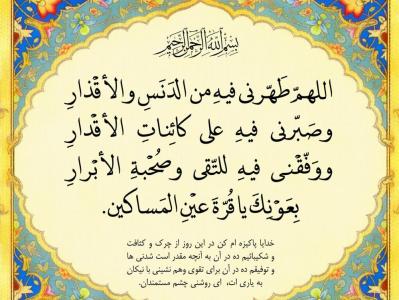 بِسْمِ اللَّهِ الرَّحْمَنِ الرَّحِيمِ
اللهمّ طَهّرني فيهِ من الدَنَسِ والأقْذارِ
وصَبّرني فيهِ على كائِناتِ الأقْدارِ
ووَفّقْني فيهِ للتّقى وصُحْبةِ الأبْرارِ
بِعَوْنِكَ يا قُرّةَ عيْنِ المَساكين.
خدایا پاکیزه ام کن در این روز از چرک و کثافت
و شکیبائیم ده در آن به آنچه مقدر است شدنی ها
و توفیقم ده در آن برای تقوی وهم نشینی با نیکان
به یاری ات، ای روشنی چشم مستمندان.